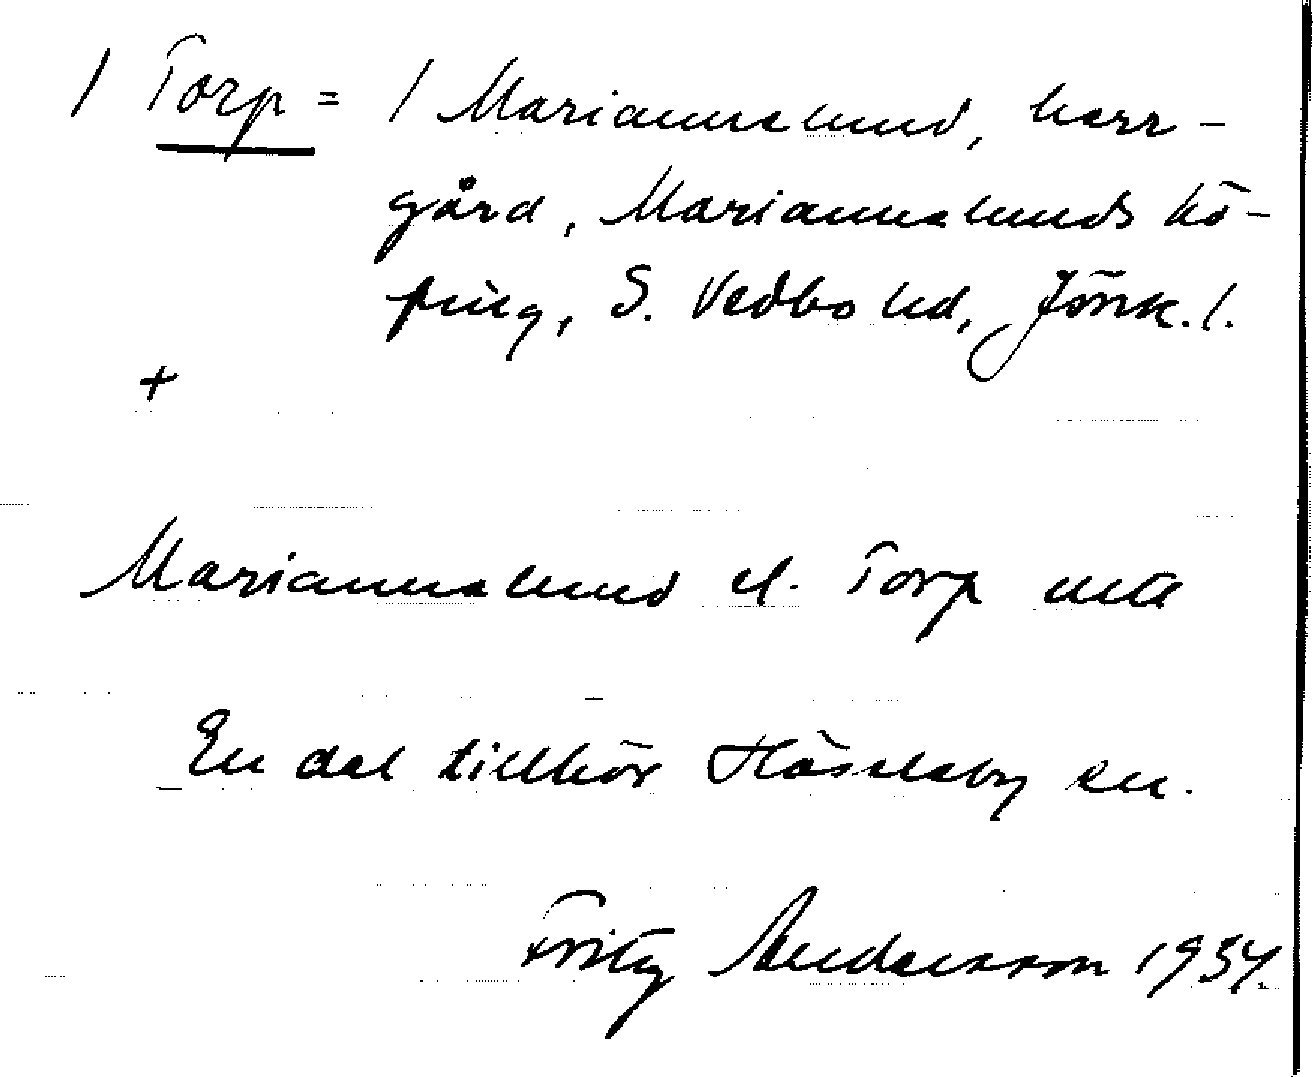 / Torp = / Mariannelund, herr-
gård, Mariannelunds kö-
ping, S. Vedbo hd, Jönk. l.
+
Mariannelund el. Torp
En dal tillhör Hässleby sn.
Fritz Andersson 1934.